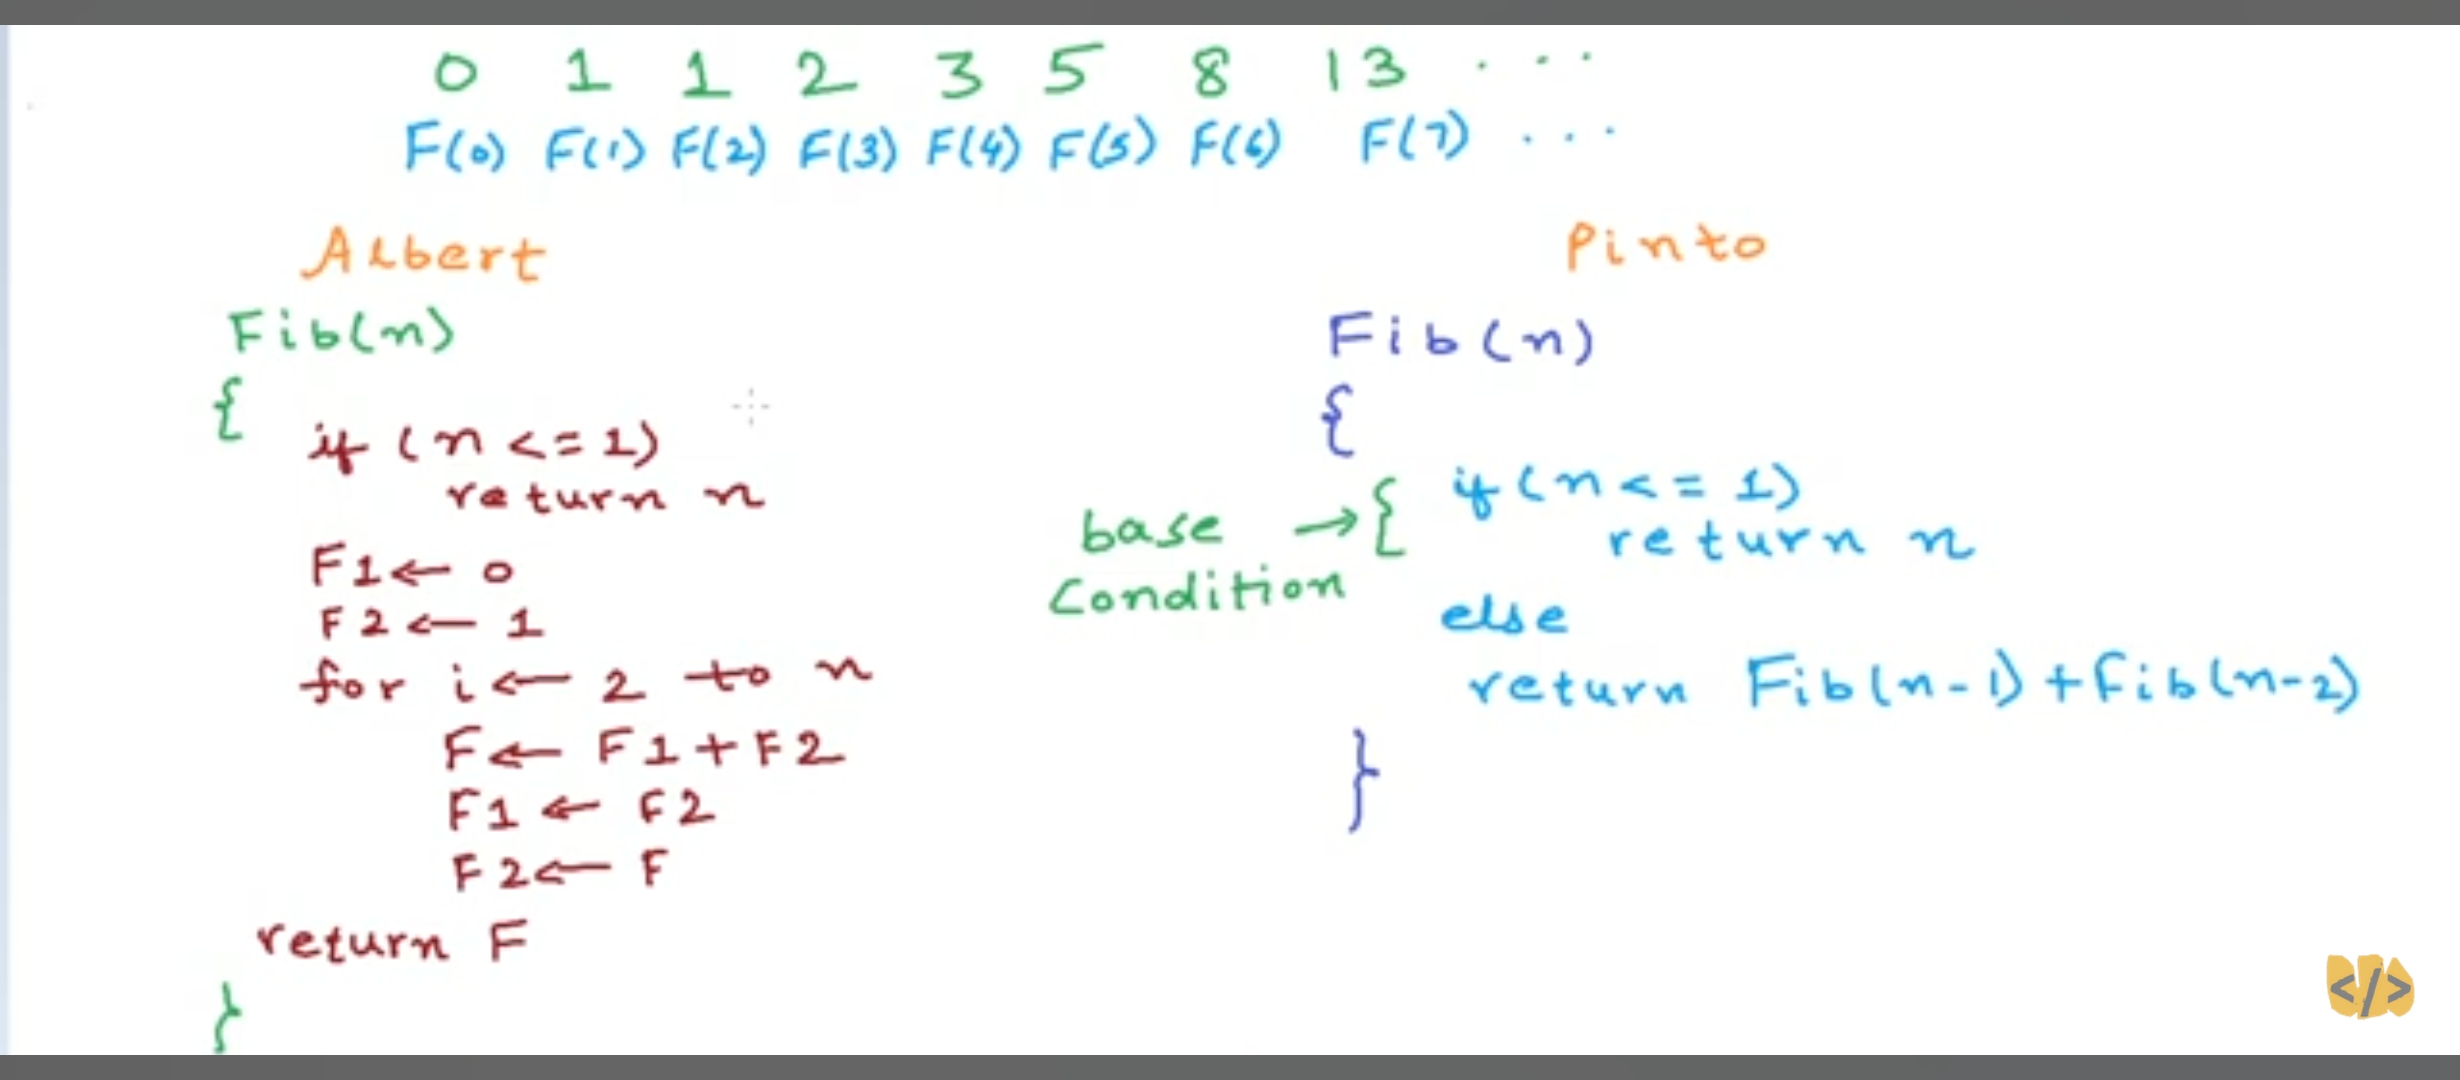 0 1 1 2 3 5 8 13 ...
F(0) F(1) F(2) F(3) F(4) F(5) F(6) F(7) ...
Albert
Fib(n)
{
if (n <= 1)
return n
F1 ← 0
F2 ← 1
for i ← 2 to n
F ← F1 + F2
F1 ← F2
F2 ← F
return F
}
Pinto
Fib(n)
{
base → {
Condition
if (n <= 1)
return n
else
return Fib(n-1) + Fib(n-2)
}
</>